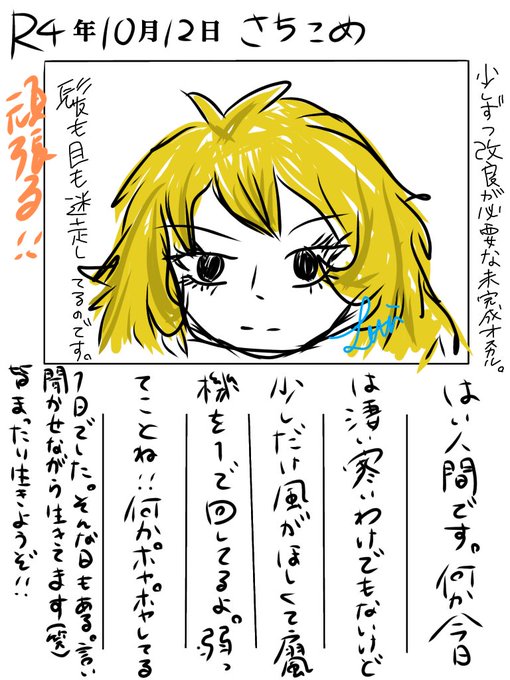 R4年10月12日 さちこめ
少しずつ改良が必要な未完成オカル。
髪も目も迷走してるのです。
頑張る!!
はい人間です。何か今日
は凄い寒いわけでもないけど
少しだけ風がほしくて扇風
機を1で回してるよ。弱っ
てことね!!何かポヤポヤしてる
1日でした。そんな日もある。言い
聞かせながら生きてます(笑)
皆まったり生きようぞ!!